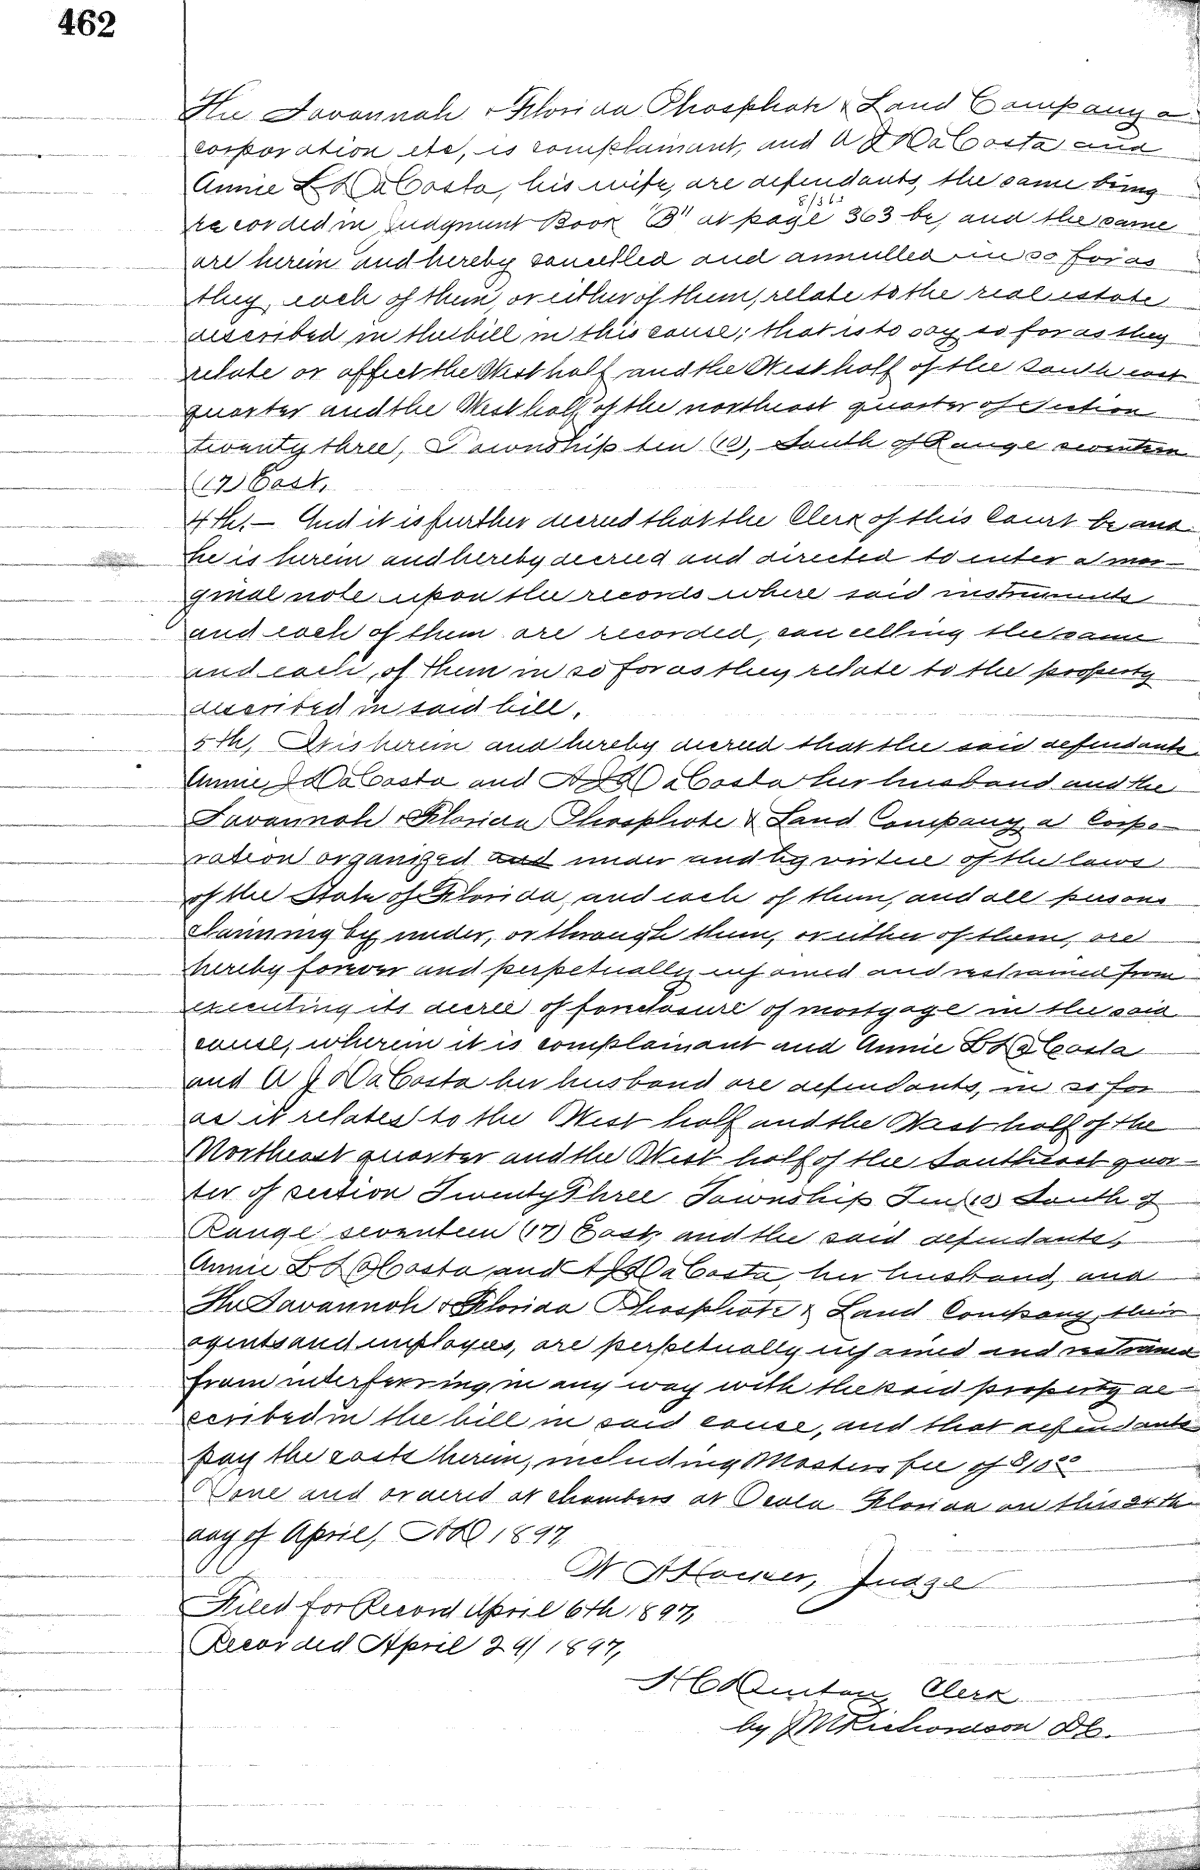 462
The Savannah & Florida Phosphate & Land Company a
corporation etc, is complainant, and A J DaCosta and
Annie L DaCosta, his wife, are defendants, the same being
recorded in Judgment Book "B" at page 363 be, and the same
are herein and hereby cancelled and annulled in so far as
they, each of them, or either of them, relate to the real estate
described in the bill in this cause; that is to say so far as they
relate or affect the West half and the West half of the South east
quarter and the West half of the northeast quarter of Section
twenty three, Township ten (10), South of Range seventeen
(17) East.
4th.— And it is further decreed that the Clerk of this Court be and
he is herein and hereby decreed and directed to enter a mar-
ginal note upon the records where said instruments
and each of them are recorded, cancelling the same
and each, of them in so far as they relate to the property
described in said bill.
5th, It is herein and hereby decreed that the said defendants
Annie DaCosta and A J DaCosta her husband and the
Savannah & Florida Phosphate & Land Company a Corpo-
ration organized and under and by virtue of the laws
of the State of Florida, and each of them, and all persons
claiming by under, or through them, or either of them, are
hereby forever and perpetually enjoined and restrained from
executing its decree of foreclosure of mortgage in the said
cause, wherein it is complainant and Annie L DaCosta
and A J DaCosta her husband are defendants, in so far
as it relates to the West half and the West half of the
Northeast quarter and the West half of the Southeast quar-
ter of section Twenty Three Township Ten (10) South of
Range seventeen (17) East and the said defendants,
Annie L DaCosta and A J DaCosta, her husband, and
The Savannah & Florida Phosphate & Land Company, their
agents and employees, are perpetually enjoined and restrained
from interferring in any way with the said property de-
scribed in the bill in said cause, and that defendants
pay the costs herein, including Masters fee of $10.00
Done and ordered at chambers at Ocala Florida on this 24th
day of April, AD 1897,
W A Hocker, Judge
Filed for Record April 6th 1897,
Recorded April 29/1897,
H C Denton Clerk
by J M Richardson DC.